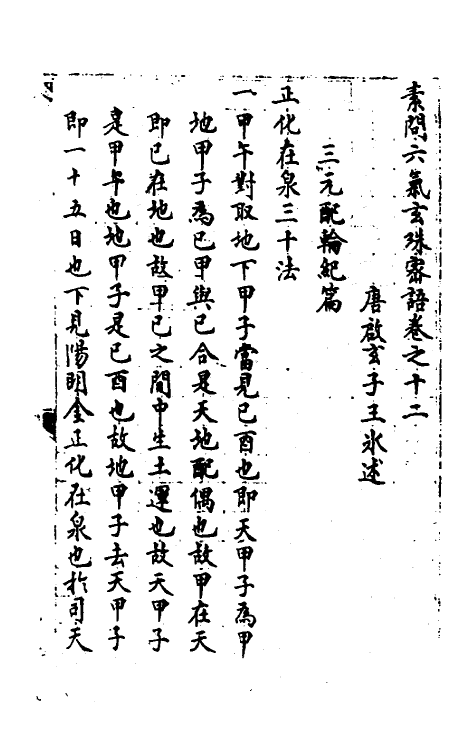 素問六氣玄珠密語卷之十二
唐啟玄子王氷述
三元配輪紀篇
正化在泉三十法
一甲午對取地下甲子當見已酉也即天甲子為甲
地甲子為已甲與已合是天地配偶也故甲在天
即已在地也故甲已之間中生土運也故天甲子
是甲午也地甲子是已酉也故地甲子去天甲子
即一十五日也下見陽明金正化在泉也於司天